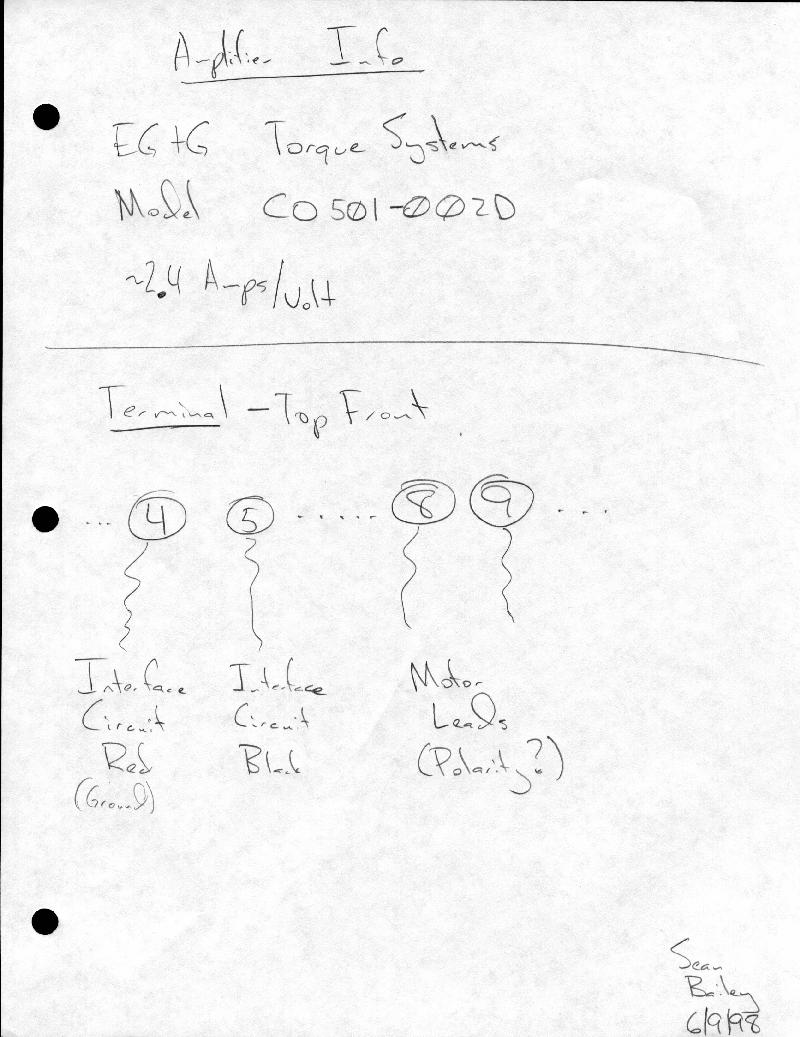 Amplifier Info
EG+G Torque Systems
Model CO501-002D
~2.4 Amps/Volt
Terminal - Top Front
... 4 5 ..... 8 9 ....
Interface Interface Motor
Circuit Circuit Leads
Red Black (Polarity?)
(Ground)
Sean
Bailey
6/9/98